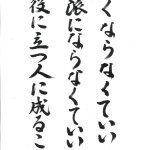 くならなくていい
限にならなくていい
役に立つ人に成るこ